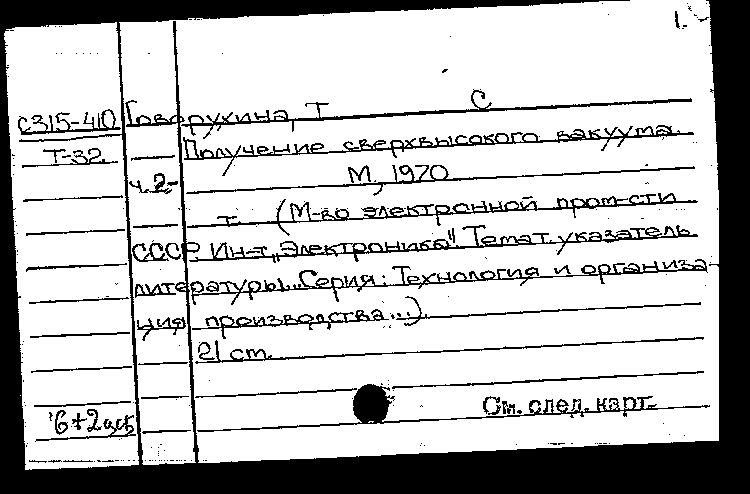 1.
С315-410 Говорухина, Т С
Т-32. Получение сверхвысокого вакуума.
ч. 2.- М, 1970
т. (М-во электронной пром-сти
СССР. Ин-т „Электроника". Темат. указатель
литературы. „Серия: Технология и организа-
ция производства...).
21 см.
См. след. карт.